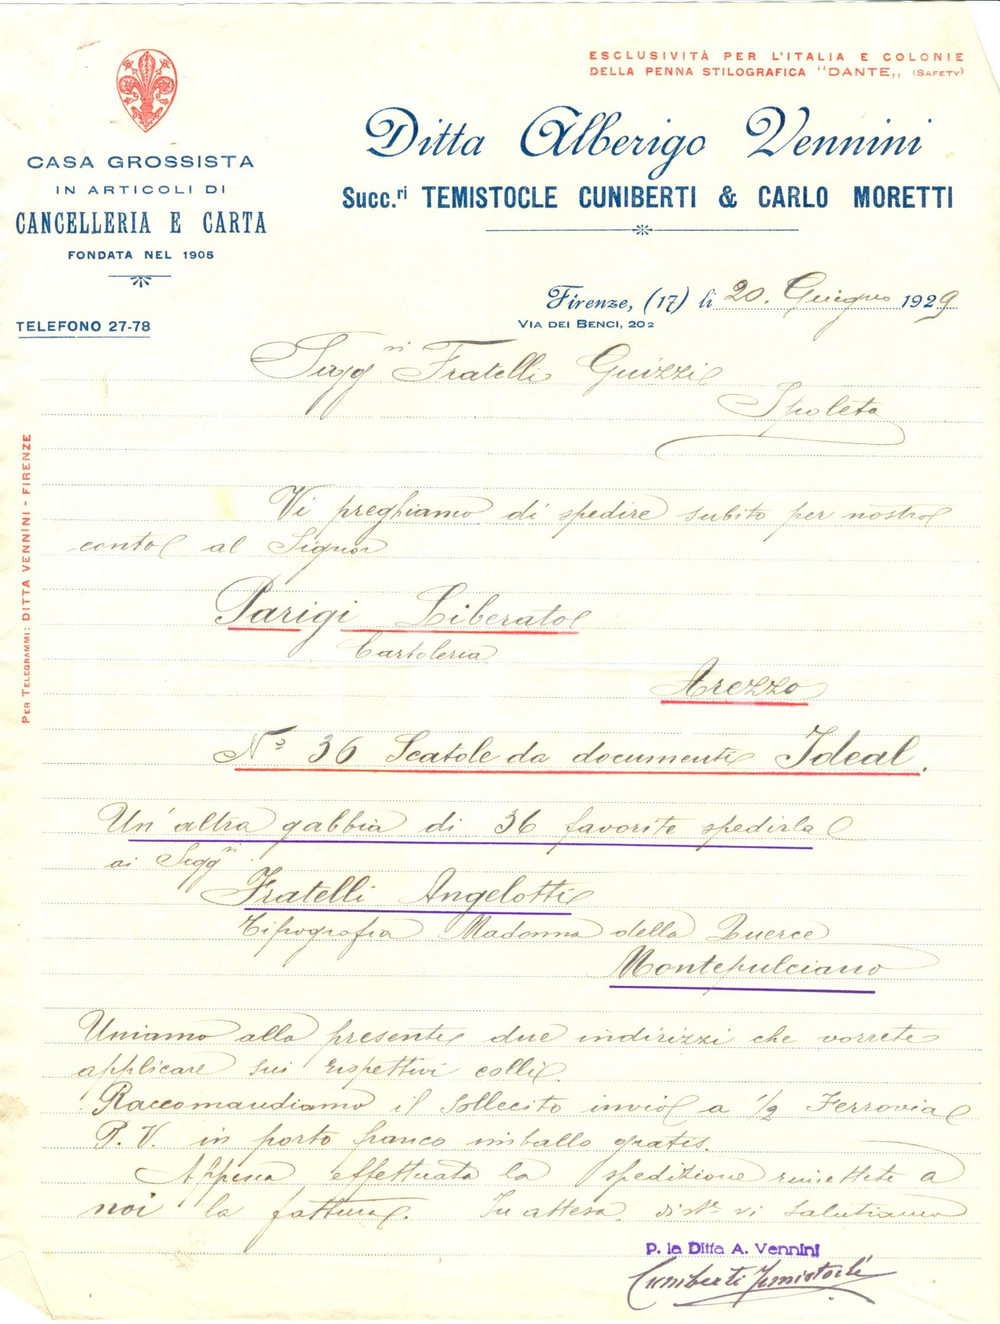 ESCLUSIVITÀ PER L'ITALIA E COLONIE
DELLA PENNA STILOGRAFICA "DANTE„ (SAFETY)
CASA GROSSISTA
IN ARTICOLI DI
CANCELLERIA E CARTA
FONDATA NEL 1905
TELEFONO 27-78
Ditta Alberigo Vennini
Succ.ri TEMISTOCLE CUNIBERTI & CARLO MORETTI
Firenze, (17) li 20. Giugno 1929
VIA DEI BENCI, 202
PER TELEGRAMMI: DITTA VENNINI - FIRENZE
Sigg.ri Fratelli Guizzi
Spoleto
Vi preghiamo di spedire subito per nostro
conto al Signor
Parigi Liberato
Cartoleria
Arezzo
No 36 Scatole da documenti Ideal.
Un'altra gabbia di 36 favorite spedirla
ai Sigg.ri
Fratelli Angelotti
Tipografia Madonna della Querce
Montepulciano
Uniamo alla presente due indirizzi che vorrete
applicare sui rispettivi colli.
Raccomandiamo il sollecito invio a 1/2 Ferrovia
P. V. in porto franco imballo gratis.
Appena effettuata la spedizione rimettete a
noi la fattura. In attesa dist.te vi salutiamo
p. la Ditta A. Vennini
Cuniberti Temistocle